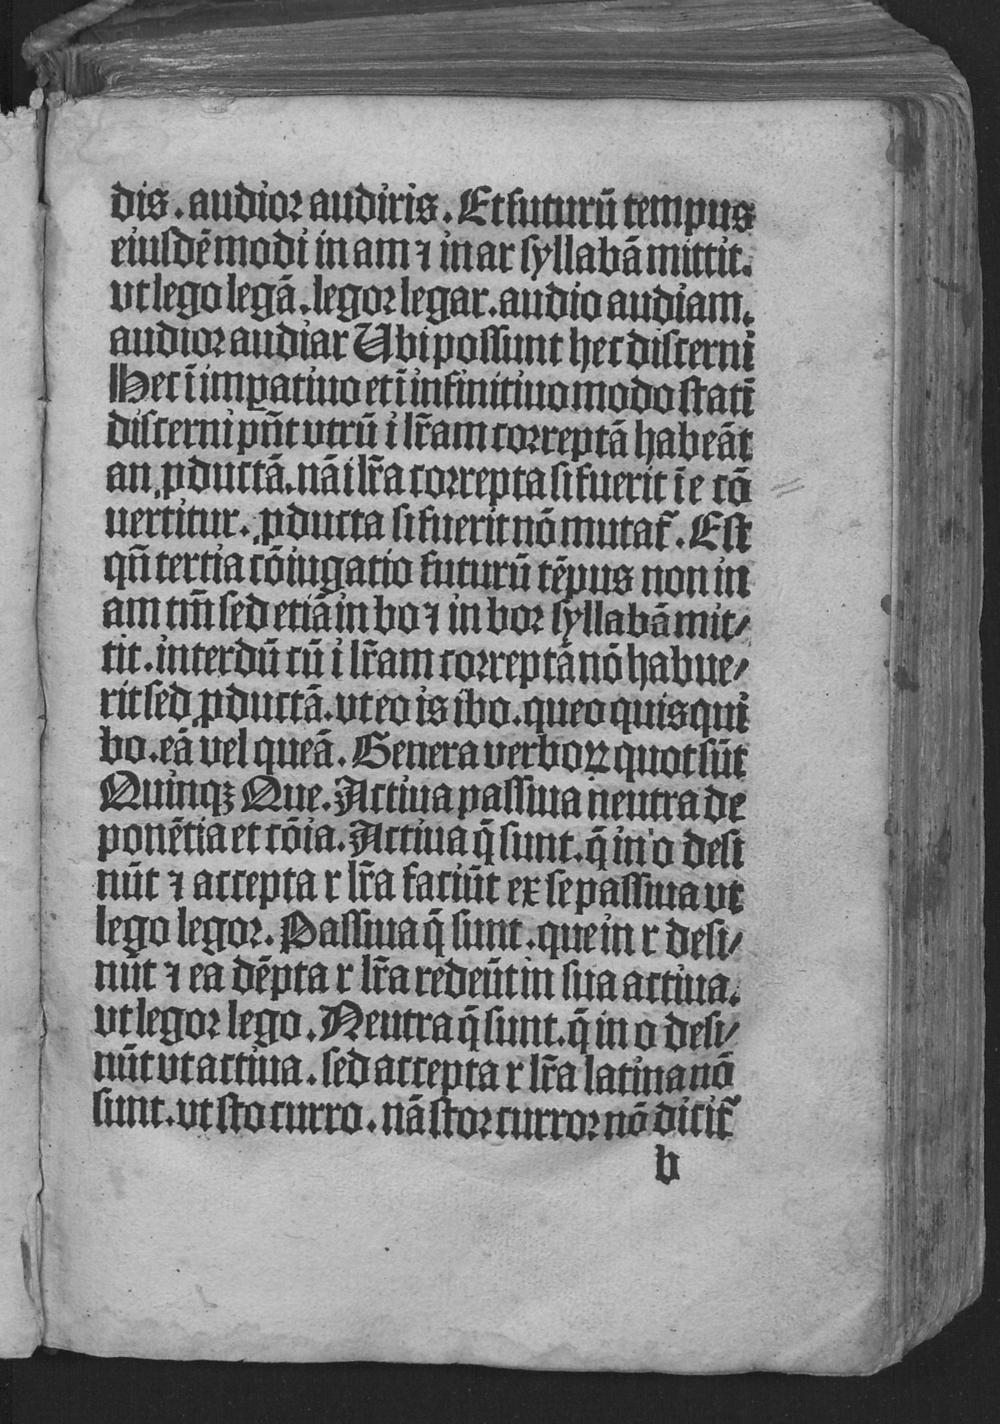 dis. audior audiris. Et futurū tempus
eiusdē modi in am ⁊ in ar syllabā mittit.
vt lego legā. legor legar. audio audiam.
audior audiar Ubi possunt hec discerni
Hec ī impatiuo et ī infinitiuo modo statī
discerni pn̄t vtrū i lr̄am correptā habeāt
an ꝓductā. nā i lr̄a correpta si fuerit ī e cō
uertitur. ꝓducta si fuerit nō mutat᷑. Est
qn̄ tertia cōiugatio futurū tēpus non in
am tm̄ sed etiā in bo ⁊ in bor syllabā mit/
tit. interdū cū i lr̄am correptā nō habue/
rit sed ꝓductā. vt eo is ibo. queo quis qui
bo. eā vel queā. Genera verboꝝ quot sūt
Quinqꝫ Que. Actiua passiua neutra de
ponētia et cōia. Actiua q̄ sunt. q̄ in o desi
nūt ⁊ accepta r lr̄a faciūt ex se passiua vt
lego legor. Passiua q̄ sunt. que in r desi/
nūt ⁊ ea dēpta r lr̄a redeūt in sua actiua.
vt legor lego. Neutra q̄ sunt. q̄ in o desi/
nūt vt actiua. sed accepta r lr̄a latina nō
sunt. vt sto curro. nā stor curror nō dicit᷑
b